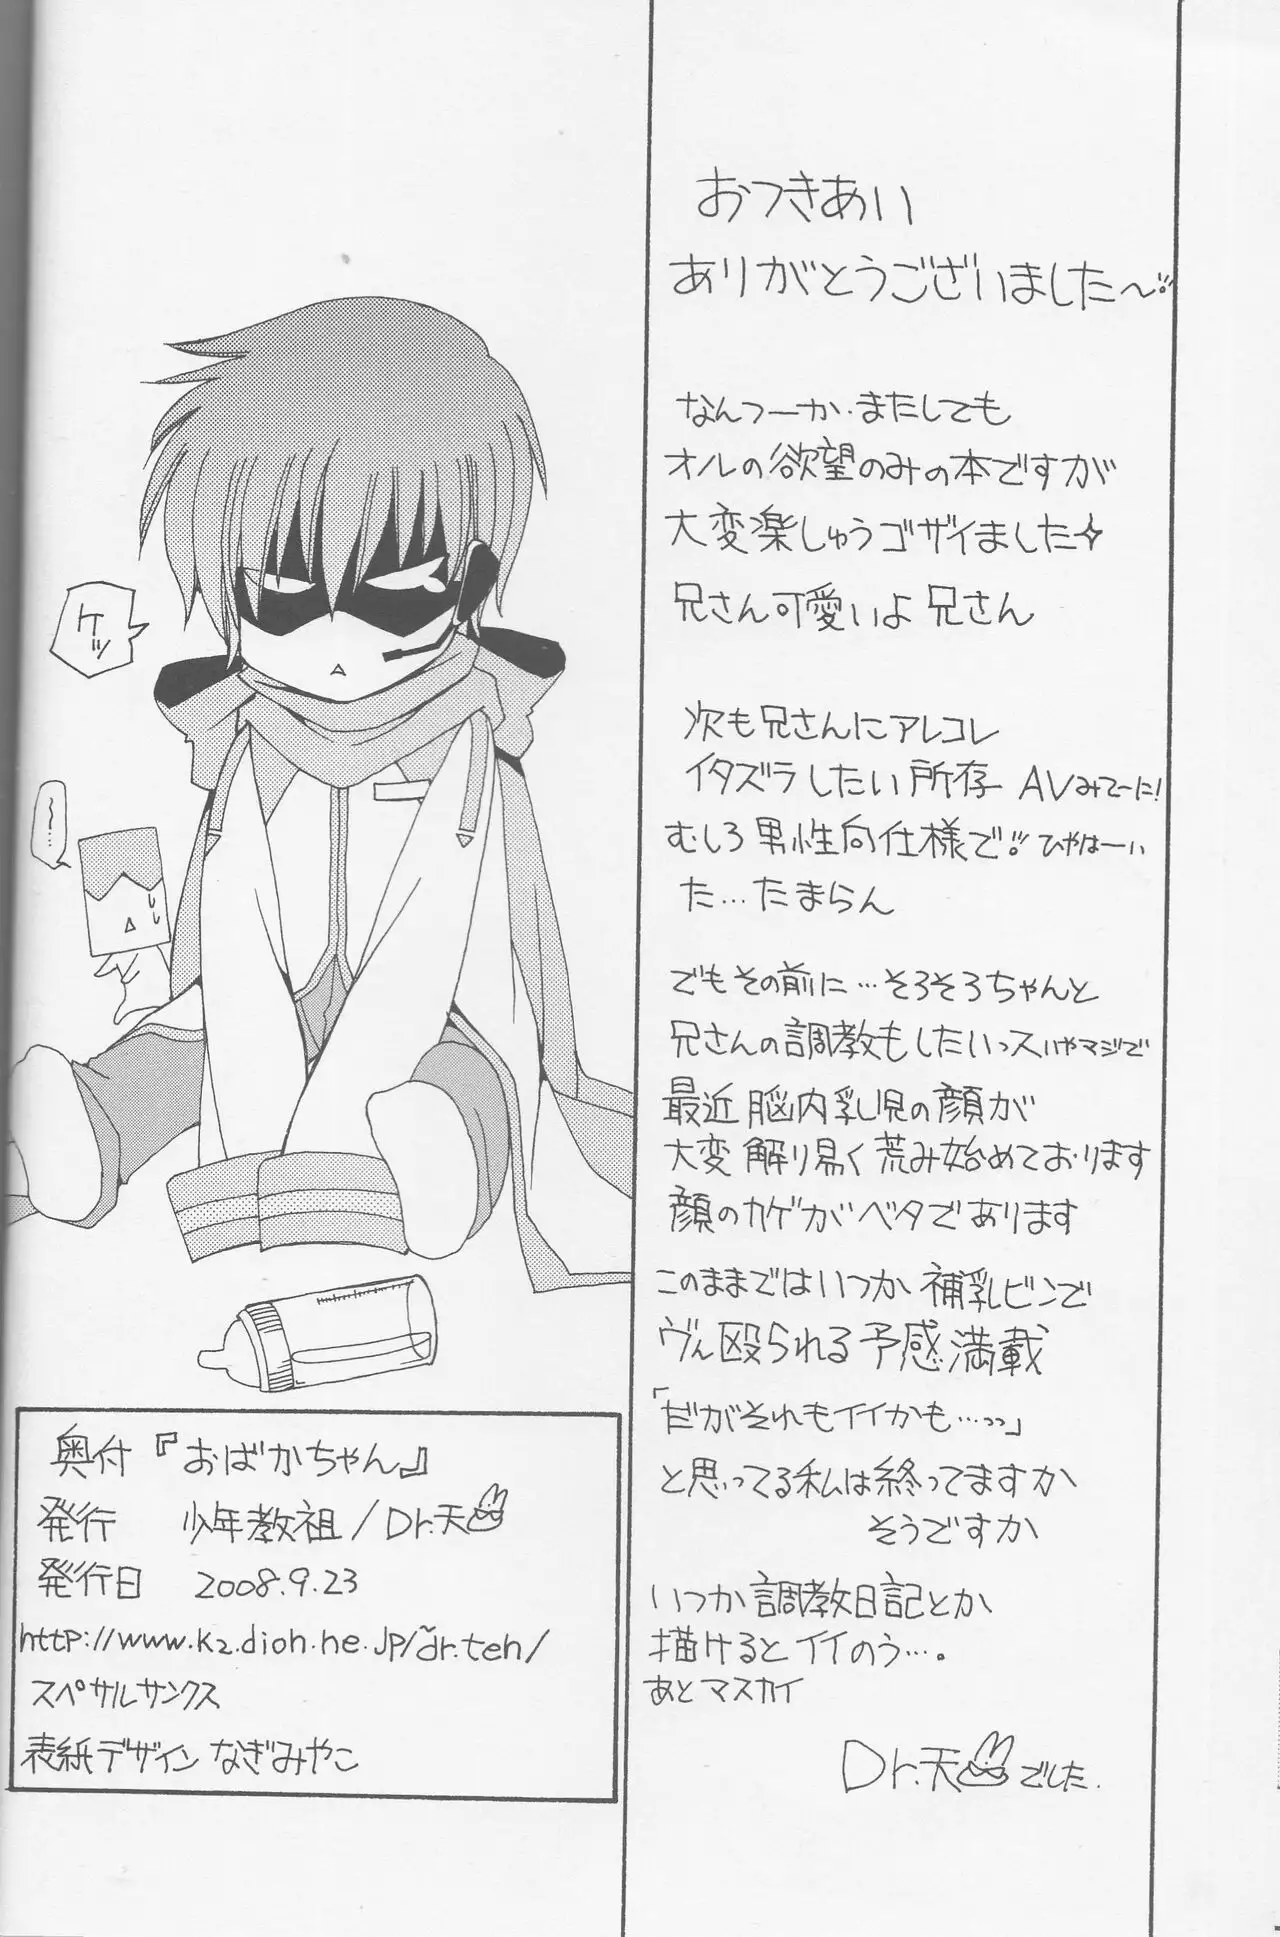 おつきあい
ありがとうございました〜!!
なんつーか・またしても
オルの欲望のみの本ですが
大変楽しゅうゴザイました
兄さん可愛いよ 兄さん
次も兄さんにアレコレ
イタズラしたい所存 AVみてーに!
むしろ男性向仕様で!! ひゃはーい
た…たまらん
でもその前に…そろそろちゃんと
兄さんの調教もしたいっスいやマジで
最近 脳内乳児の顔が
大変 解り易く荒み始めております
顔のカゲがベタであります
このままではいつか 補乳ビンで
ヴん殴られる予感満載
「だがそれもイイかも…っっ」
と思ってる私は終ってますか
そうですか
いつか調教日記とか
描けるとイイのう…。
あとマスカイ
Dr.天でした.
ケッ
〜…
奥付『おばかちゃん』
発行 少年教祖/Dr.天
発行日 2008.9.23
http://www.k2.dion.ne.jp/~dr.ten/
スペサルサンクス
表紙デザイン なぎみやこ